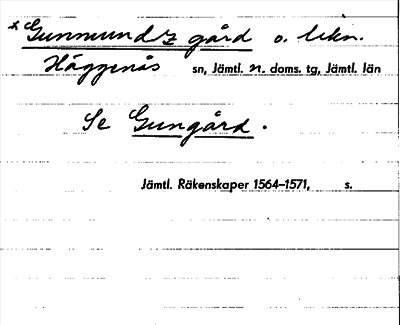 x Gunmundz gård o. likn.
Häggenås sn, Jämtl. n. doms. tg, Jämtl. län
Se Gungård.
Jämtl. Räkenskaper 1564–1571, s.